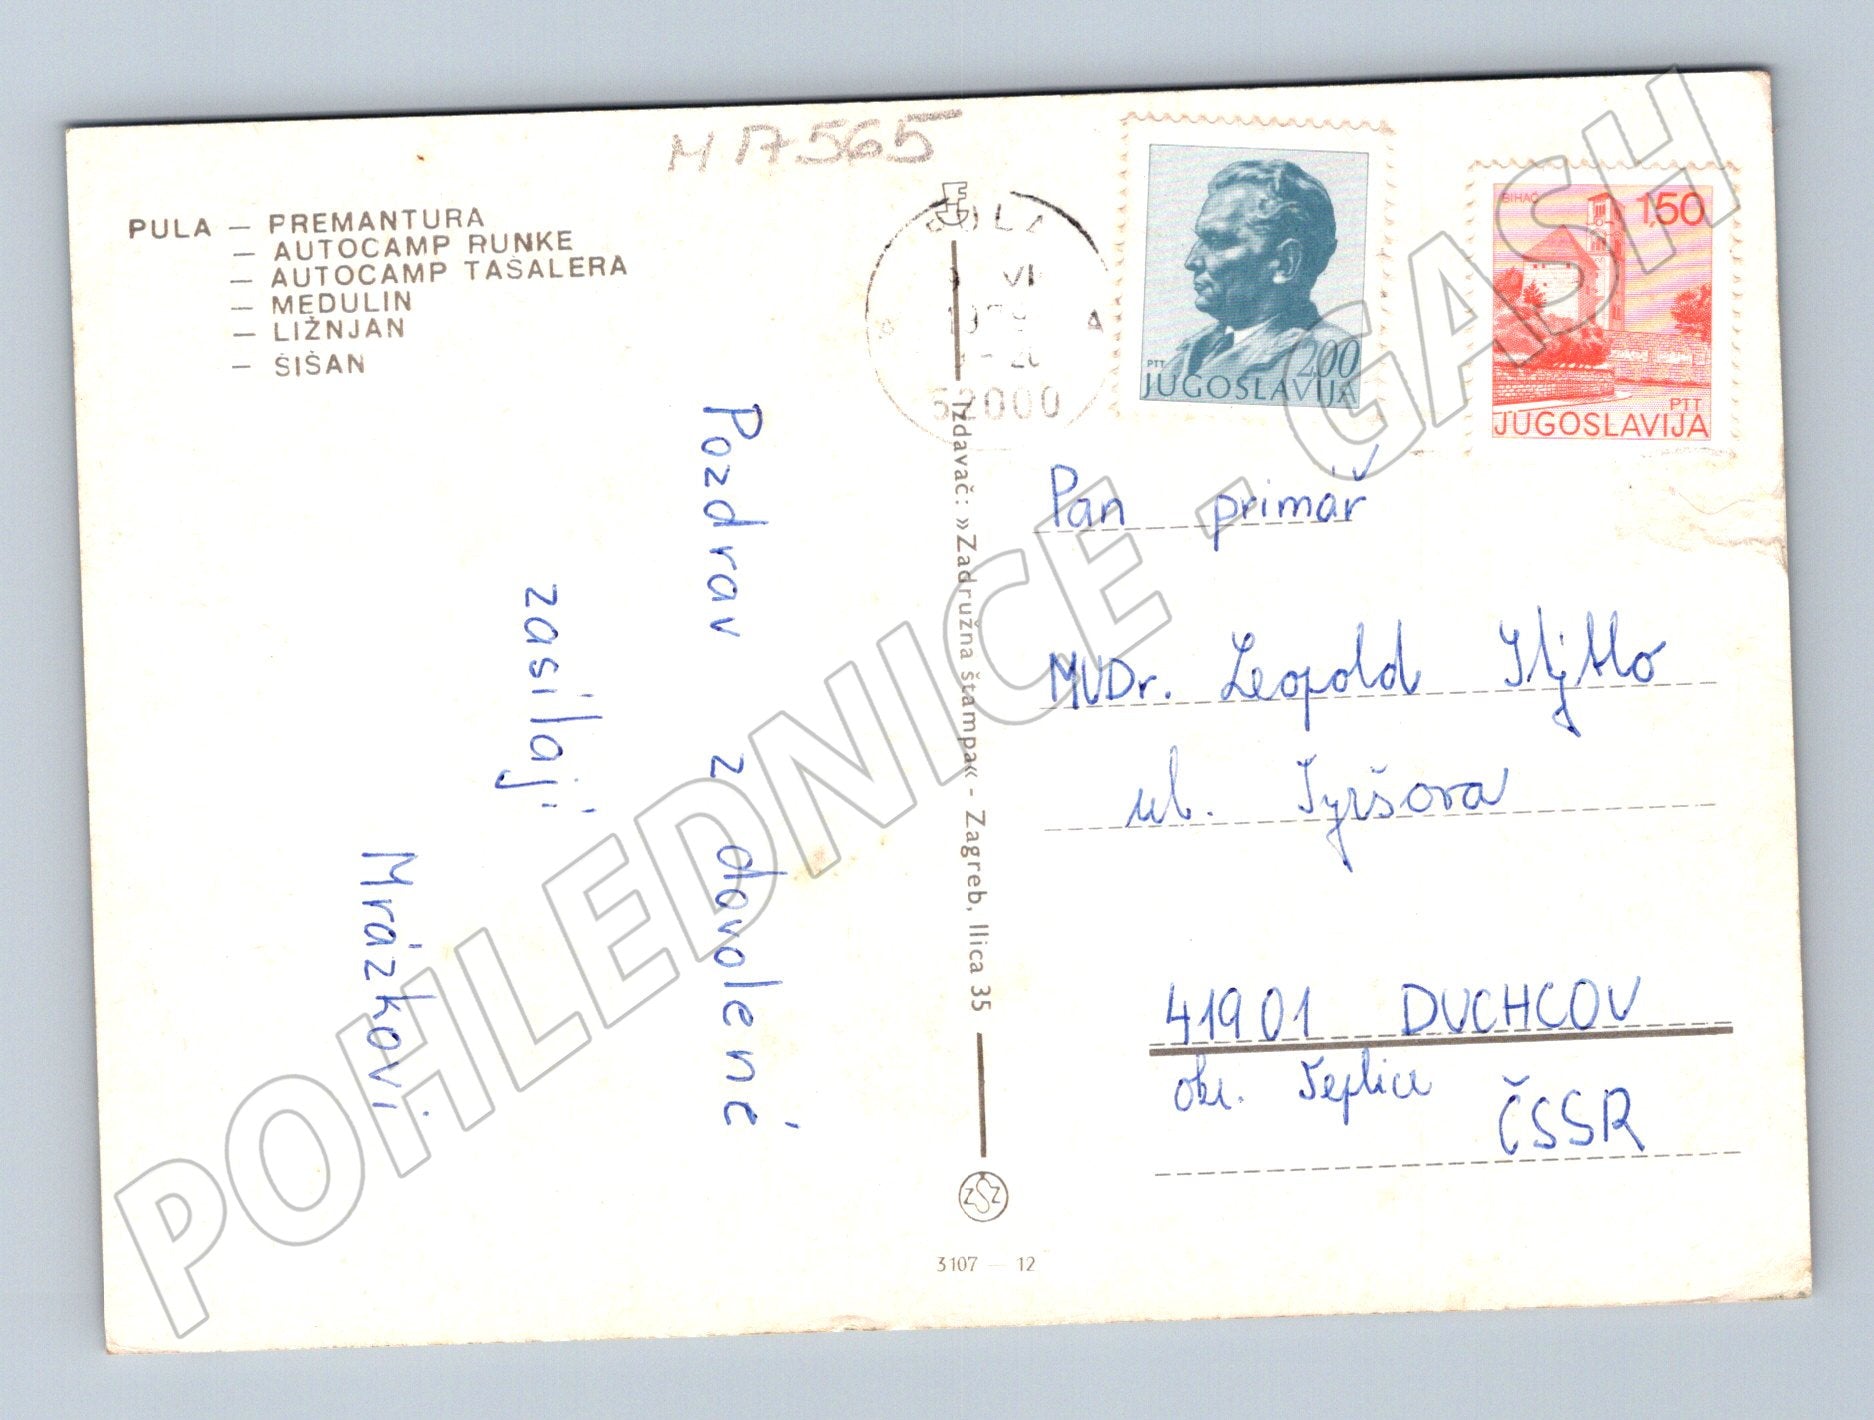 M 17565
PULA — PREMANTURA
— AUTOCAMP RUNKE
— AUTOCAMP TAŠALERA
— MEDULIN
— LIŽNJAN
— ŠIŠAN
Pozdrav z dovolené
zasílají
Mrázkovi
PULA
VI
52000
Izdavač: »Zadružna štampa« - Zagreb, Ilica 35
ZSZ
3107 — 12
PTT
2,00
JUGOSLAVIJA
BIHAĆ
1,50
PTT
JUGOSLAVIJA
Pan primář
MUDr. Leopold
ul. Tyršova
41901 DUCHCOV
okr. Teplice
ČSSR
POHLEDNICE - GASH